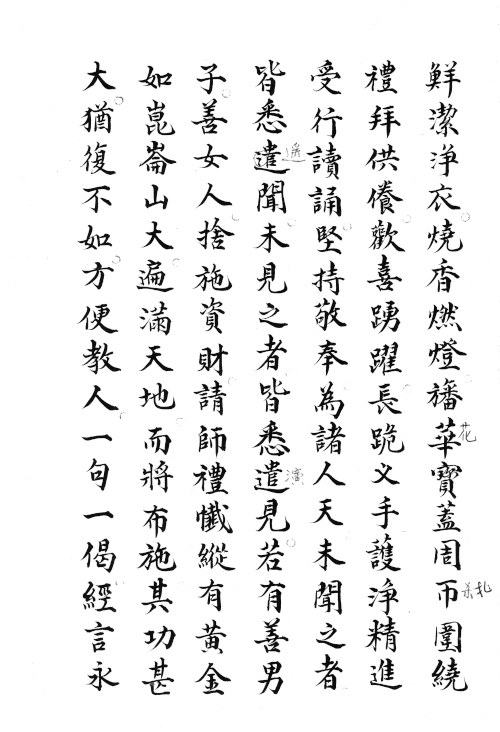 鮮潔淨衣燒香燃燈旛華寶蓋周帀圍繞
禮拜供養歡喜踴躍長跪叉手護淨精進
受行讀誦堅持敬奉為諸人天未聞之者
皆悉遣聞未見之者皆悉遣見若有善男
子善女人捨施資財請師禮懺縱有黃金
如崑崙山大遍滿天地而將布施其功甚
大猶復不如方便教人一句一偈經言永
花